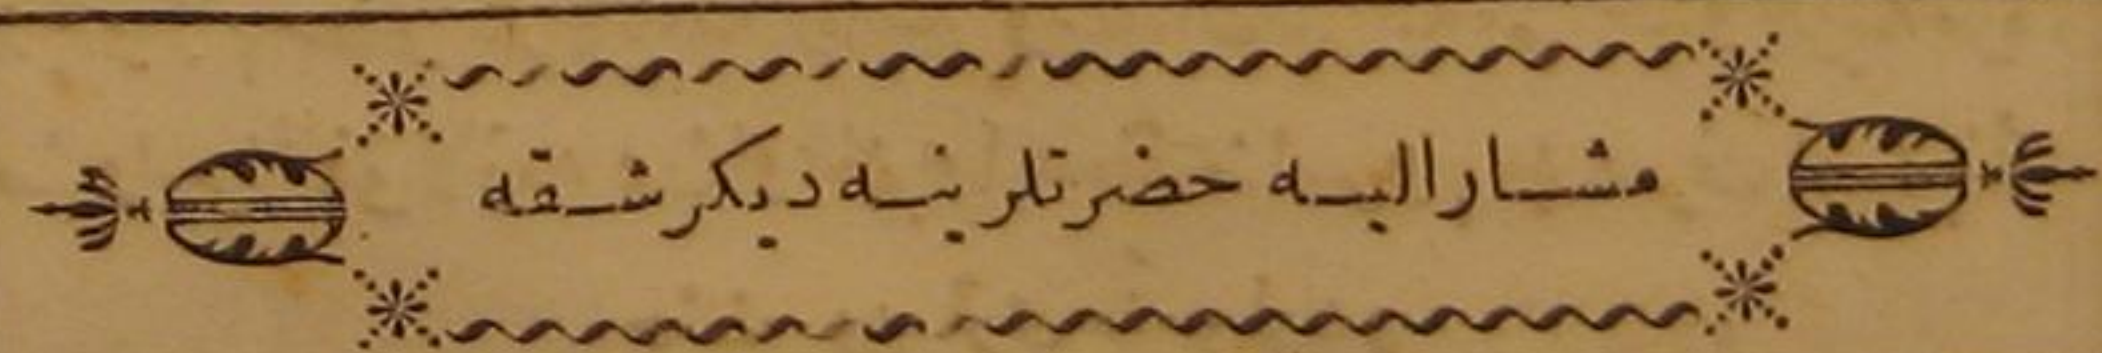 مشار اليه حضرتلرينه ديكر شقه